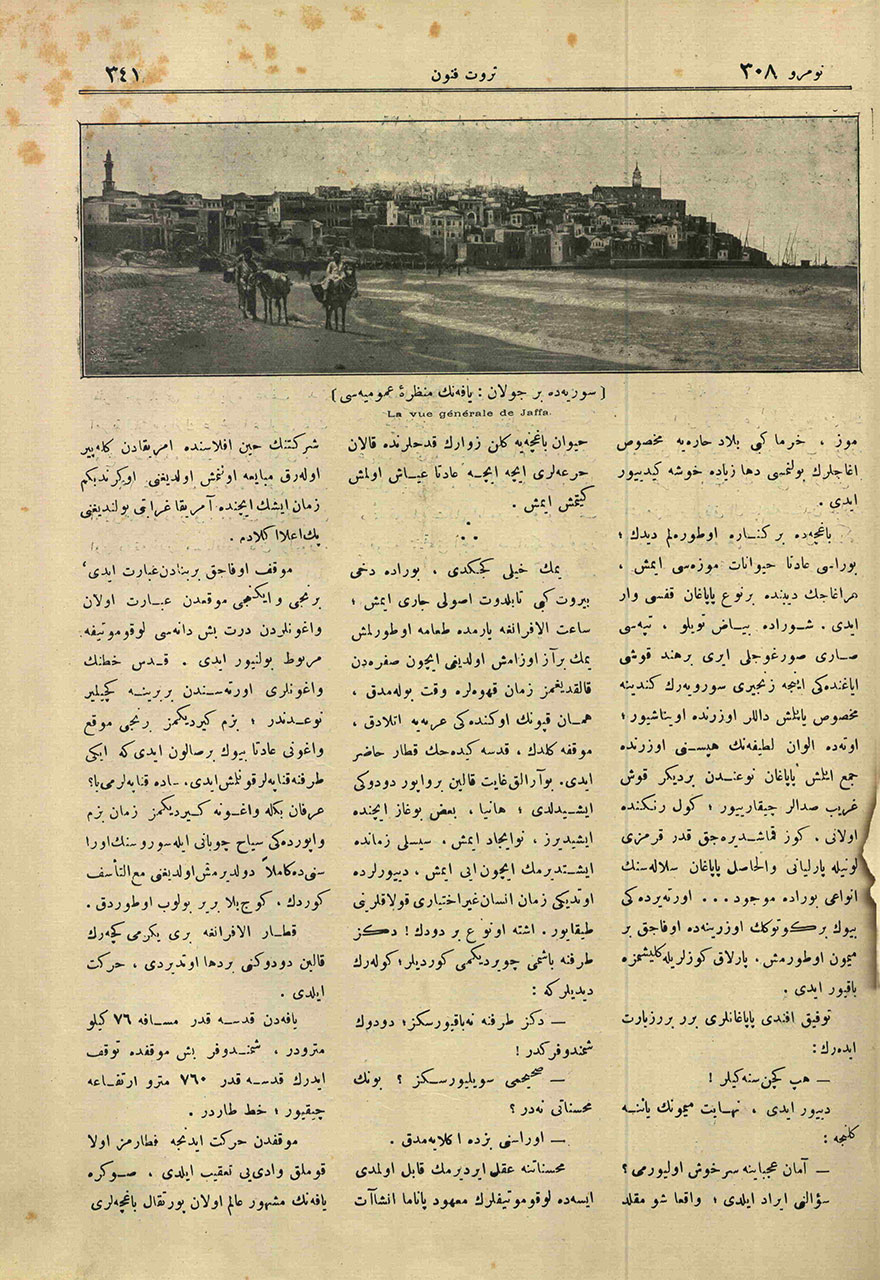 نومرو ٣٠٨
ثروت فنون
٣٤١
( سوریه‌ده بر جولان : یافه‌نك منظرۀ عمومیه‌سی )
La vue générale de Jaffa.
موز ، خرما كبی بلاد حاره‌یه مخصوص
اغاجلرك بولنمسی دها زیاده خوشه كیدییور
ایدی .
باغچه‌ده بر كناره اوطوره‌لم دیدك ؛
بوراسی عادتا حیوانات موزه‌سی ایمش ،
هراغاجك دیبنده برنوع پاپاغان قفسی وار
ایدی . شوراده بیاض تویلو ، تپه‌سی
صاری صورغوجلی ایری برهند قوشی
ایاغنده‌كی اینجه زنجیری سورویه‌رك كندینه
مخصوص یاپلش داللر اوزرنده اویناشیور ؛
اوته‌ده الوان لطیفه‌نك هپسنی اوزرنده
جمع ایتلش پاپاغان نوعندن بردیكر قوش
غریب صدالر چیقارییور ؛ كول رنكنده
اولانی . كوز قاشدیره‌جق قدر قرمزی
لونیله پارلیانی والحاصل پاپاغان سلاله‌سنك
انواعی بوراده موجود ... اورته‌یرده‌كی
بیوك بركوتوكك اوزرینه‌ده اوفاجق بر
میمون اوطورمش . پارلاق كوزلریله كلیشمزه
باقیور ایدی .
توفیق افندی پاپاغانلری برر برر زیارت
ایده‌رك :
— هپ كچن سنه كیلر !
دییور ایدی ، نهایت میمونك یاننه
كلنجه :
— آمان عجباینه سرخوش اولیورمی ؟
سؤالنی ایراد ایلدی ؛ واقعا شو مقلد
حیوان باغچه‌یه كلن زوارك قدحلرنده قالان
جرعه‌لری ایچه ایچه عادتا عیاش اولمش
كیتمش ایمش .
یمك خیلی كجیكدی ، بوراده دخی
بیروت كبی تابلدوت اصولی جاری ایمش ؛
ساعت الافرانغه یارمده طعامه اوطورلمش
یمك برآز اوزامش اولدیغی ایچون صفره‌دن
قالقدیغمز زمان قهوه‌لره وقت بوله‌مدق ،
همان قپونك اوكنده‌كی عربه‌یه اتلادق ،
موقفه كلدك ، قدسه كیده‌جك قطار حاضر
ایدی. بوآرالق غایت قالین برواپور دودوكی
ایشیدلدی ؛ هانیا ، بعض بوغاز ایچنده
ایشیدیرز ، نوایجاد ایمش . سیسلی زمانده
ایشتدیرمك ایچون ایی ایمش ، دییورلرده
اوتدیكی زمان انسان غیراختیاری قولاقلرینی
طیقایور . اشته اونوع بر دودك ! دكز
طرفنه باشمی چویردیكمی كوردیلر ؛ كوله‌رك
دیدیلركه :
— دكز طرفنه نه‌باقیورسكز ؛ دودوك
شمندوفركدر !
— صحیحمی سویلیورسكز ؟ بونك
محسناتی نه‌در ؟
— اوراسنی بزده اكلایه‌مدق .
محسناتنه عقل ایردیرمك قابل اولمدی
ایسه‌ده لوقوموتیفلرك معهود پاناما انشاآت
شركتنك حین افلاسنده امریقادن كله‌پیر
اوله‌رق مبایعه اولنمش اولدیغنی اوكرندیكم
زمان ایشك ایچنده آمریقا غرابتی بولندیغنی
پك‌اعلا اكلادم .
موقف اوفاجق بربنادن عبارت ایدی ،
برنجی و ایكنجی موقعدن عبارت اولان
واغونلردن درت بش دانه‌سی لوقوموتیفه
مربوط بولنیور ایدی . قدس خطنك
واغونلری اورته‌سندن بربرینه كچیلیر
نوعندندر ؛ بزم كیردیكمز برنجی موقع
واغونی عادتا بیوك برصالون ایدی كه ایكی
طرفنه قنابه‌لر قونلش ایدی، ساده قنابه‌لرمی‌یا؟
عرفان بكله واغونه كیردیكمز زمان بزم
واپورده‌كی سیاح چوبانی ایله سوروسنك اورا
سنی‌ده كاملاً دولدیرمش اولدیغنی مع التأسف
كوردك ، كوج‌بلا بریر بولوب اوطوردق .
قطار الافرانغه بری یكرمی كچه‌رك
قالین دودوكنی بردها اوتدیردی ، حركت
ایلدی .
یافه‌دن قدسه قدر مسافه ٧٦ كیلو
مترودر ، شمندوفر بش موقفده توقف
ایدرك قدسه قدر ٧٦٠ مترو ارتفاعه
چیقیور ؛ خط طاردر .
موقفدن حركت ایدنجه قطارمز اولا
قوملق وادی‌یی تعقیب ایلدی ، صوكره
یافه‌نك مشهور عالم اولان پورتقال باغچه‌لری